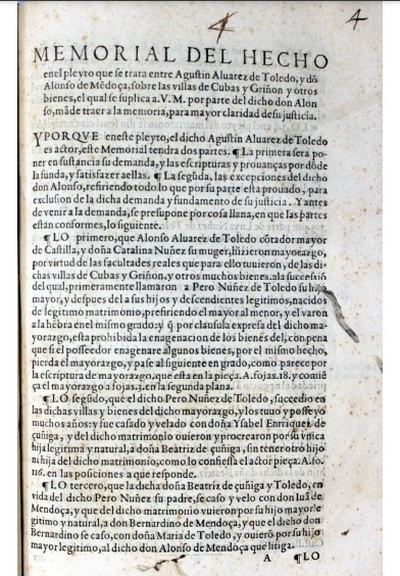 4 4
MEMORIAL DEL HECHO
en el pleyto que se trata entre Agustin Aluarez de Toledo, y dõ
Alonso de Mẽdoça, sobre las villas de Cubas y Griñon y otros
bienes, el qual se suplica a. V. M. por parte del dicho don Alon
so, mãde traer a la memoria, para mayor claridad de su justicia.
YPORQVE en este pleyto, el dicho Agustin Aluarez de Toledo
es actor, este Memorial tendra dos partes. ¶ La primera sera po-
ner en sustancia su demanda, y las escripturas y prouanças por dõde
la funda, y satisfazer a ellas. ¶ La segũda, las excepciones del dicho
don Alonso, refiriendo todo lo que por su parte esta prouado, para
exclusion de la dicha demanda y fundamento de su justicia. Y antes
de venir a la demanda, se presupone por cosa llana, en que las partes
estan conformes, lo siguiente.
¶ LO primero, que Alonso Aluarez de Toledo cõtador mayor
de Castilla, y doña Catalina Nuñez su muger, hizieron mayorazgo,
por virtud de las facultades reales que para ello tuuieron, de las di-
chas villas de Cubas y Griñon, y otros muchos bienes. a la successiõ
del qual, primeramente llamaron a Pero Nuñez de Toledo su
mayor, y despues del a sus hijos y descendientes legitimos, nacidos
de legitimo matrimonio, prefiriendo el mayor al menor, y el varon
a la hẽbra en el mismo grado: y q̃ por clausula expresa del dicho ma-
yorazgo, esta prohibida la enagenacion de los bienes del, con pena
que si el posseedor enagenare algunos bienes, por el mismo hecho,
pierda el mayorazgo, y passe al siguiente en grado, como parece por
la escriptura de mayorazgo, que esta en la pieça. A. fojas. 18. y comiẽ
ça el mayorazgo a fojas. 3. en la segunda plana.
¶ LO segũdo, que el dicho Pero Nuñez de Toledo, succedio en
las dichas villas y bienes del dicho mayorazgo, y los tuuo y posseyo
muchos años: y fue casado y velado con doña Ysabel Enrriquez de
çuñiga, y del dicho matrimonio ouieron y procrearon por su vnica
hija legitima y natural, a doña Beatriz de çuñiga, sin tener otro hijo
ni hija del dicho matrimonio, como lo confiessa el actor pieça. A. fo.
116. en las posiciones a que responde.
¶ LO tercero, que la dicha doña Beatriz de çuñiga y Toledo, en
vida del dicho Pero Nuñez su padre, se caso y velo con don Iuã de
Mendoça, y que del dicho matrimonio vuieron por su hijo mayor le
gitimo y natural, a don Bernardino de Mendoça, y que el dicho don
Bernardino se caso, con doña Maria de Toledo, y ouierõ por su hijo
mayor legitimo, al dicho don Alonso de Mendoça que litiga.
A ¶ LO